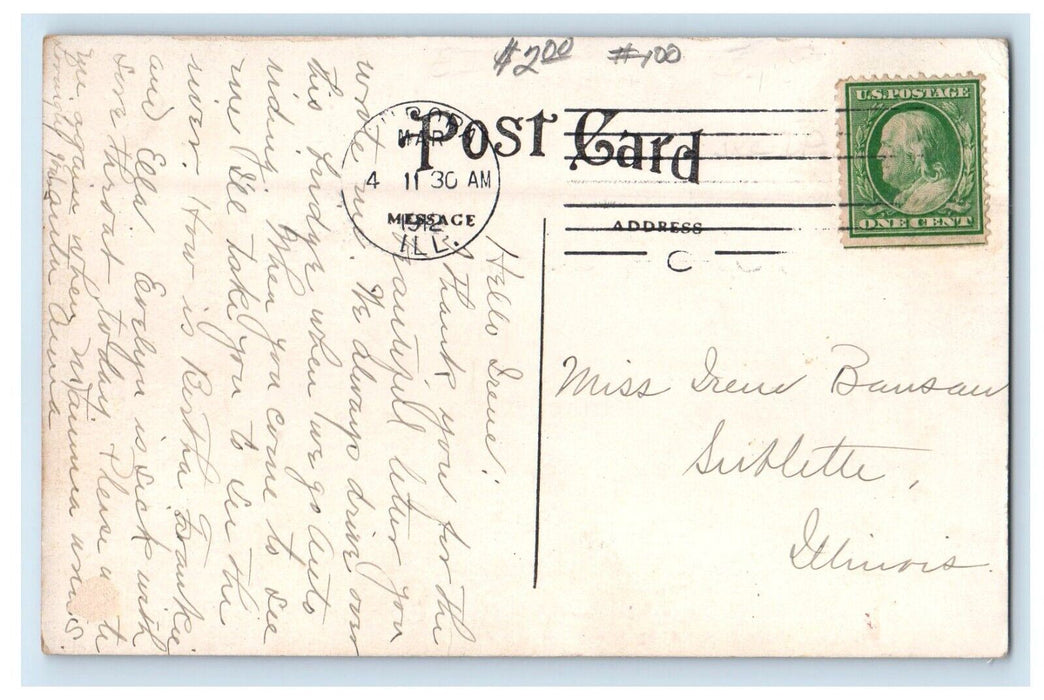 $2.00 #100
POST CARD
U.S. POSTAGE
ONE CENT
MAR
4 11 30 AM
1912
ILL.
MESSAGE
ADDRESS
C
Miss Irene Bansau
Sublette,
Illinois.
Hello Irene!
thank you for the
beautiful letter you
wrote me. We always drive over
this bridge when we go Auto
riding. When you come to see
me I'll take you to see the
river. How is Bertha Frankie
and Ella. Evelyn is sick with
sore throat today. Please write
me again when Mamma writes
Anna